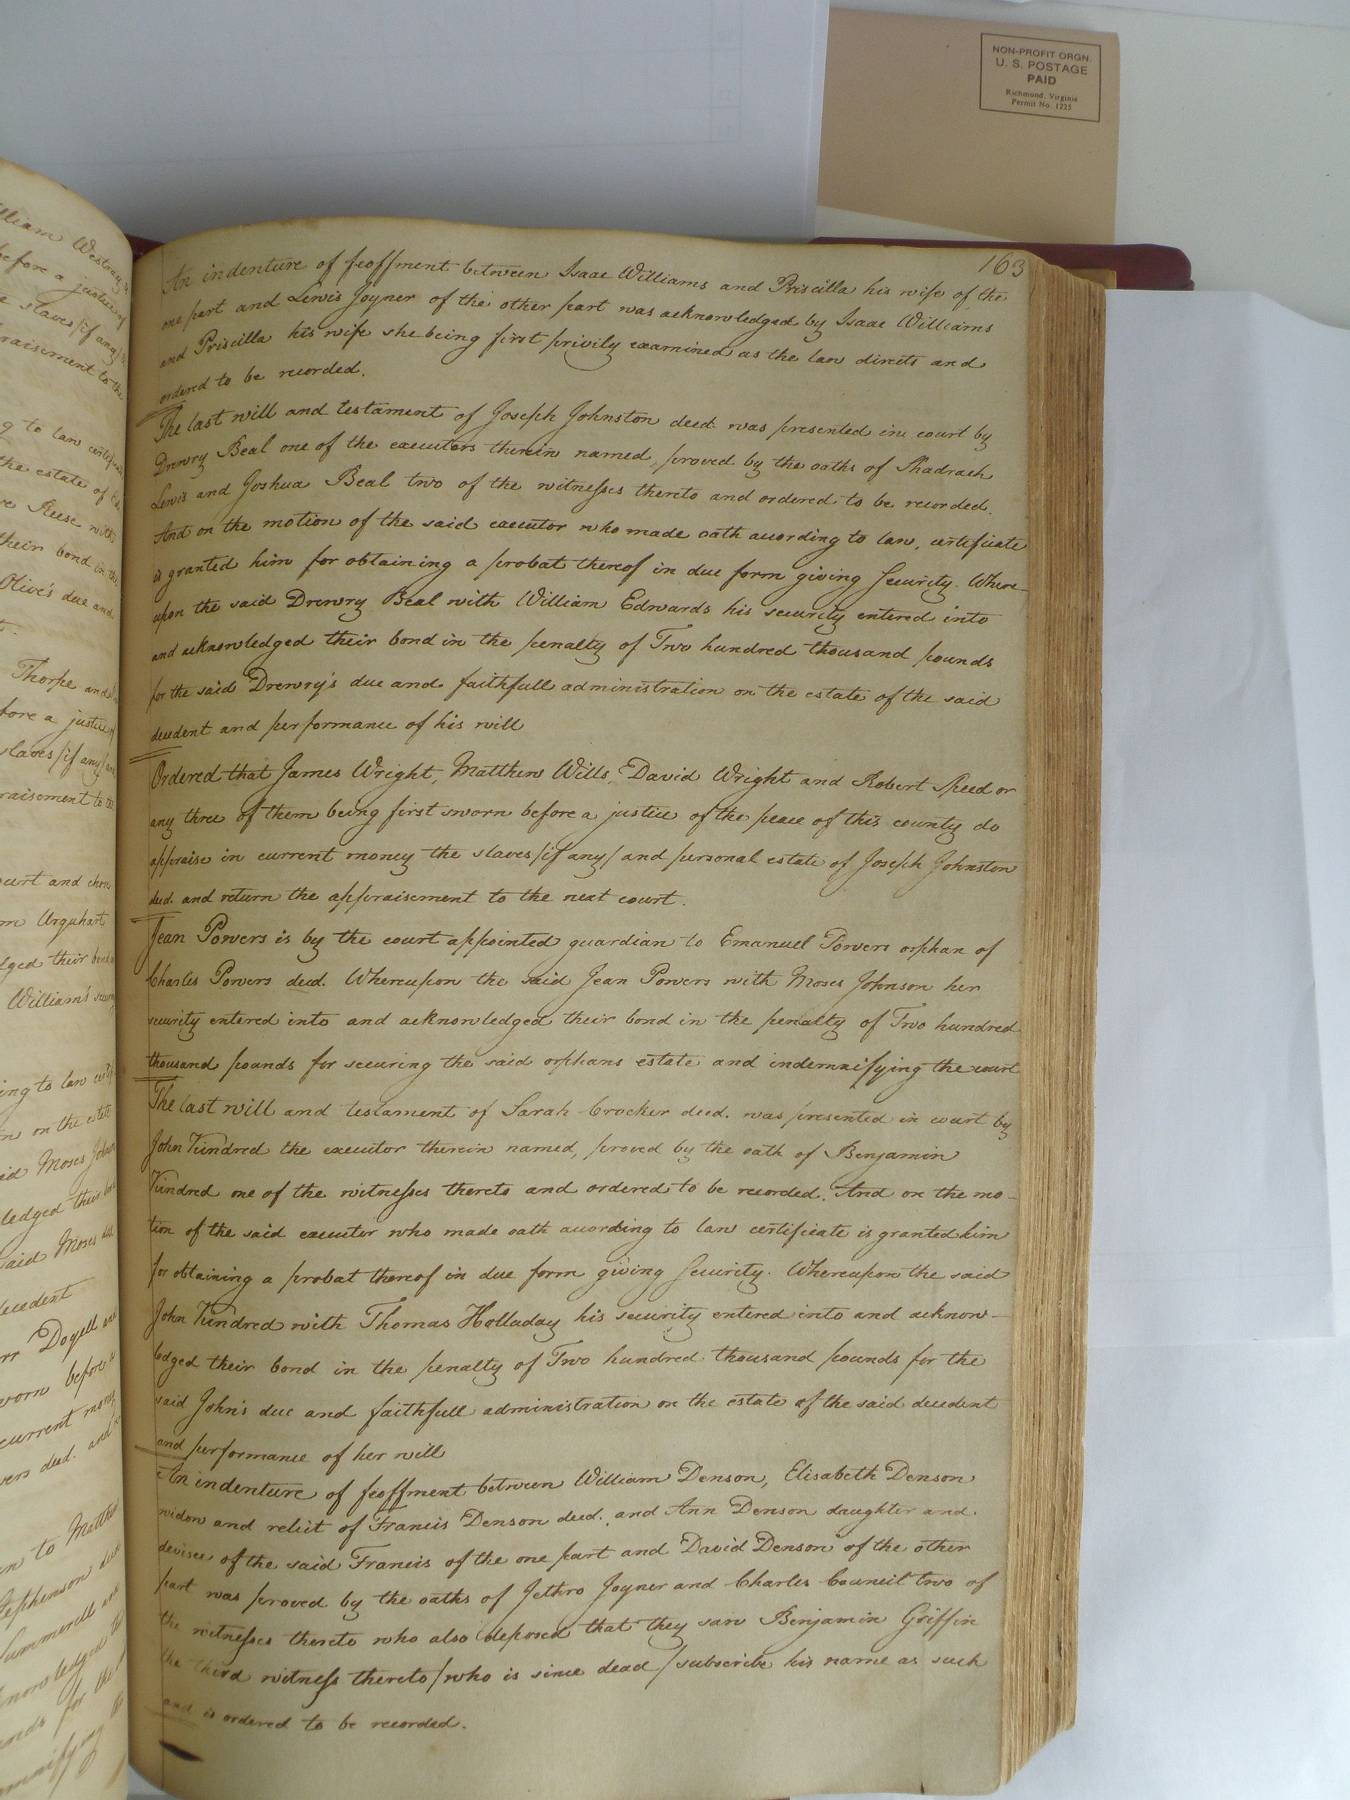 NON-PROFIT ORGN.
U. S. POSTAGE
PAID
Richmond, Virginia
Permit No. 1225
163
An indenture of feoffment between Isaac Williams and Priscilla his wife of the
one part and Lewis Joyner of the other part was acknowledged by Isaac Williams
and Priscilla his wife she being first privily examined as the law directs and
ordered to be recorded.
The last will and testament of Joseph Johnston decd. was presented in court by
Drewry Beal one of the executors therein named, proved by the oaths of Shadrach
Lewis and Joshua Beal two of the witnesses thereto and ordered to be recorded.
And on the motion of the said executor who made oath according to law, certificate
is granted him for obtaining a probat thereof in due form giving security. Where
upon the said Drewry Beal with William Edwards his security entered into
and acknowledged their bond in the penalty of Two hundred thousand pounds
for the said Drewry's due and faithfull administration on the estate of the said
decedent and performance of his will
Ordered that James Wright, Matthew Wills, David Wright and Robert Speed or
any three of them being first sworn before a justice of the peace of this county do
appraise in current money the slaves /if any/ and personal estate of Joseph Johnston
decd. and return the appraisement to the next court.
Jean Powers is by the court appointed guardian to Emanuel Powers orphan of
Charles Powers decd. Whereupon the said Jean Powers with Moses Johnson her
security entered into and acknowledged their bond in the penalty of Two hundred
thousand pounds for securing the said orphans estate and indemnifying the court
The last will and testament of Sarah Crocker decd. was presented in court by
John Kindred the executor therein named, proved by the oath of Benjamin
Kindred one of the witnesses thereto and ordered to be recorded. And on the mo-
tion of the said executor who made oath according to law certificate is granted him
for obtaining a probat thereof in due form giving security. Whereupon the said
John Kindred with Thomas Holladay his security entered into and acknow-
ledged their bond in the penalty of Two hundred thousand pounds for the
said John's due and faithfull administration on the estate of the said decedent
and performance of her will
An indenture of feoffment between William Denson, Elisabeth Denson
widow and relict of Francis Denson decd. and Ann Denson daughter and
devisee of the said Francis of the one part and David Denson of the other
part was proved by the oaths of Jethro Joyner and Charles Council two of
the witnesses thereto who also deposed that they saw Benjamin Griffin
the third witness thereto /who is since dead/ subscribe his name as such
and is ordered to be recorded.